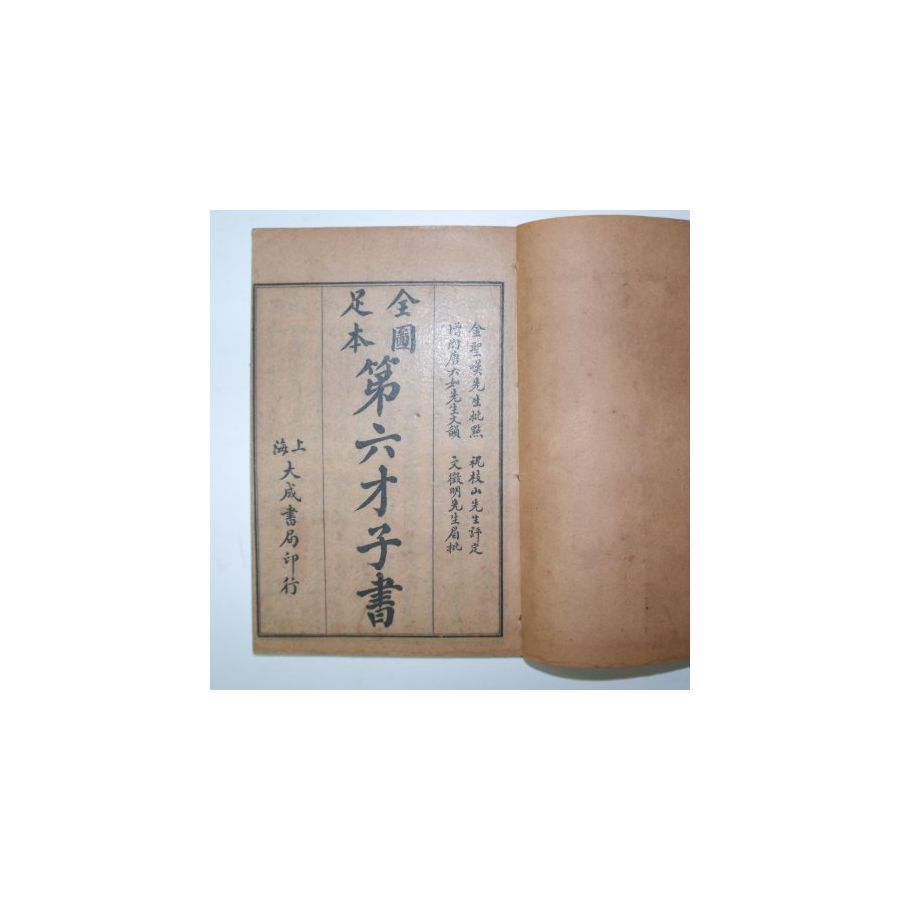 金聖嘆先生批點　祝枝山先生評定
增附唐六如先生文韻　文徵明先生眉批
全圖
足本
第六才子書
上海
大成書局印行